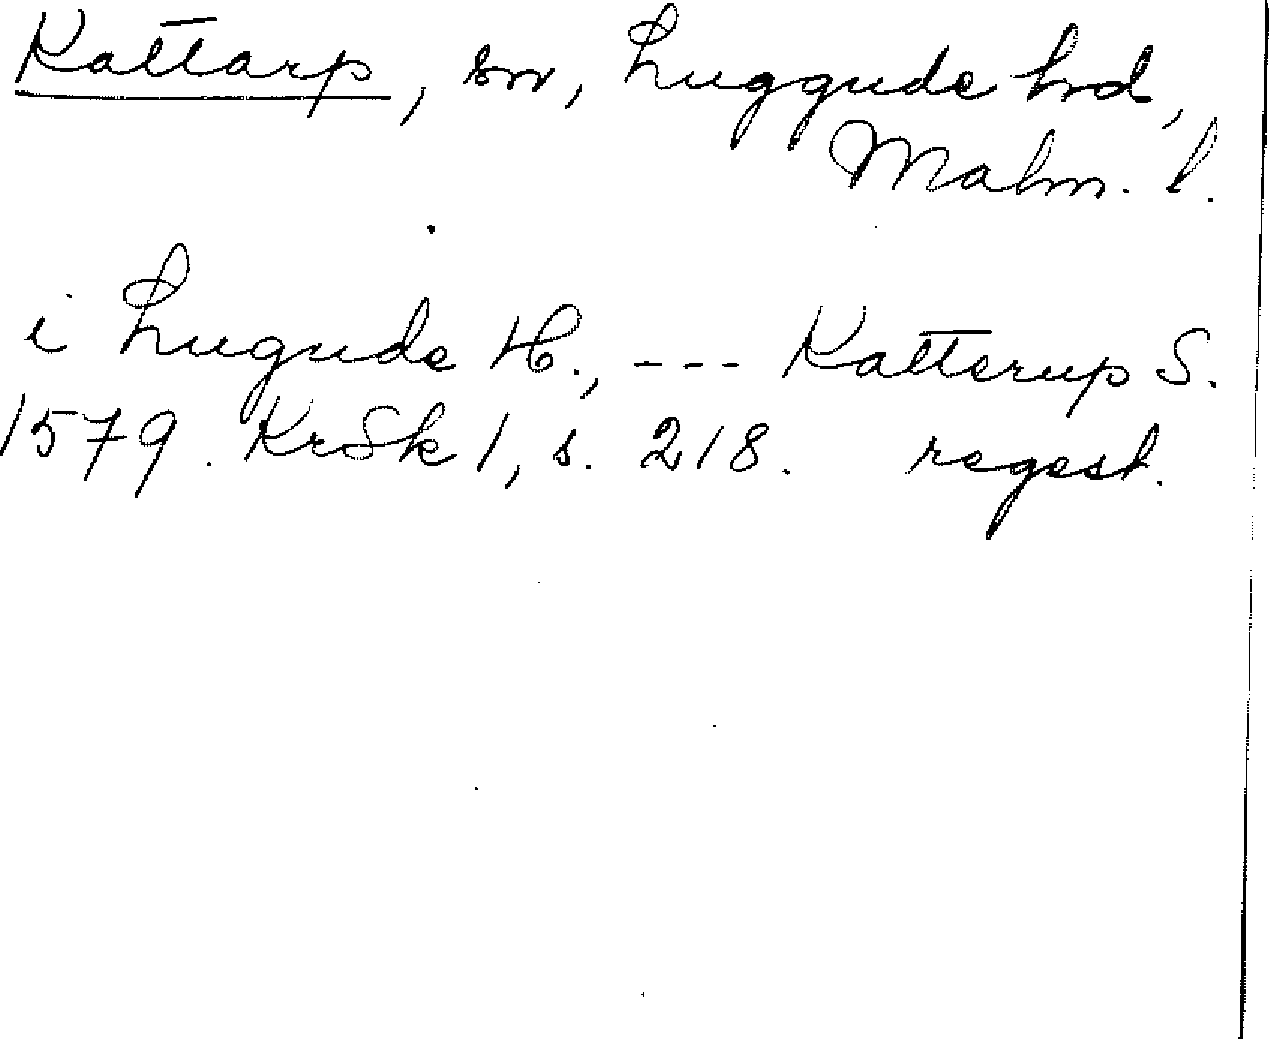 Kattarp, sn, Luggude hd,
Malm. l.
i Lugude H., --- Katterup S.
1579. KrSk 1, s. 218. regest.